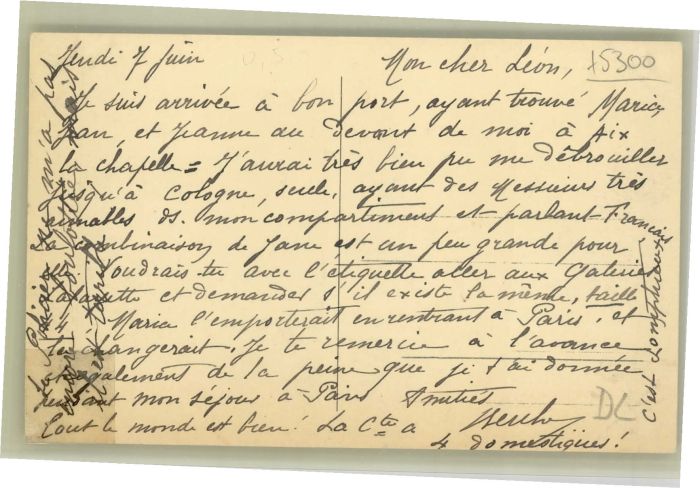 Jeudi 7 Juin
Mon cher Léon,
15300
Je suis arrivée à bon port, ayant trouvé Marice,
Jean, et Jeanne au devant de moi à Aix
la chapelle = J'aurai très bien pu me débrouiller
jusqu'à Cologne, seule, ayant des Messieurs très
aimables ds. mon compartiment et parlant Français
La combinaison de Jane est un peu grande pour
elle Voudrais-tu avec l'étiquette aller aux Galeries
Lafayette et demander s'il existe la même, taille
4, Marice l'emporterait en rentrant à Paris, et
la changerait. Je te remercie à l'avance
également de la peine que je t'ai donnée
pendant mon séjour à Paris Amitiés
tout le monde est bien! La Cte a
4 domestiques!
DL
c'est
n'a pas
mais